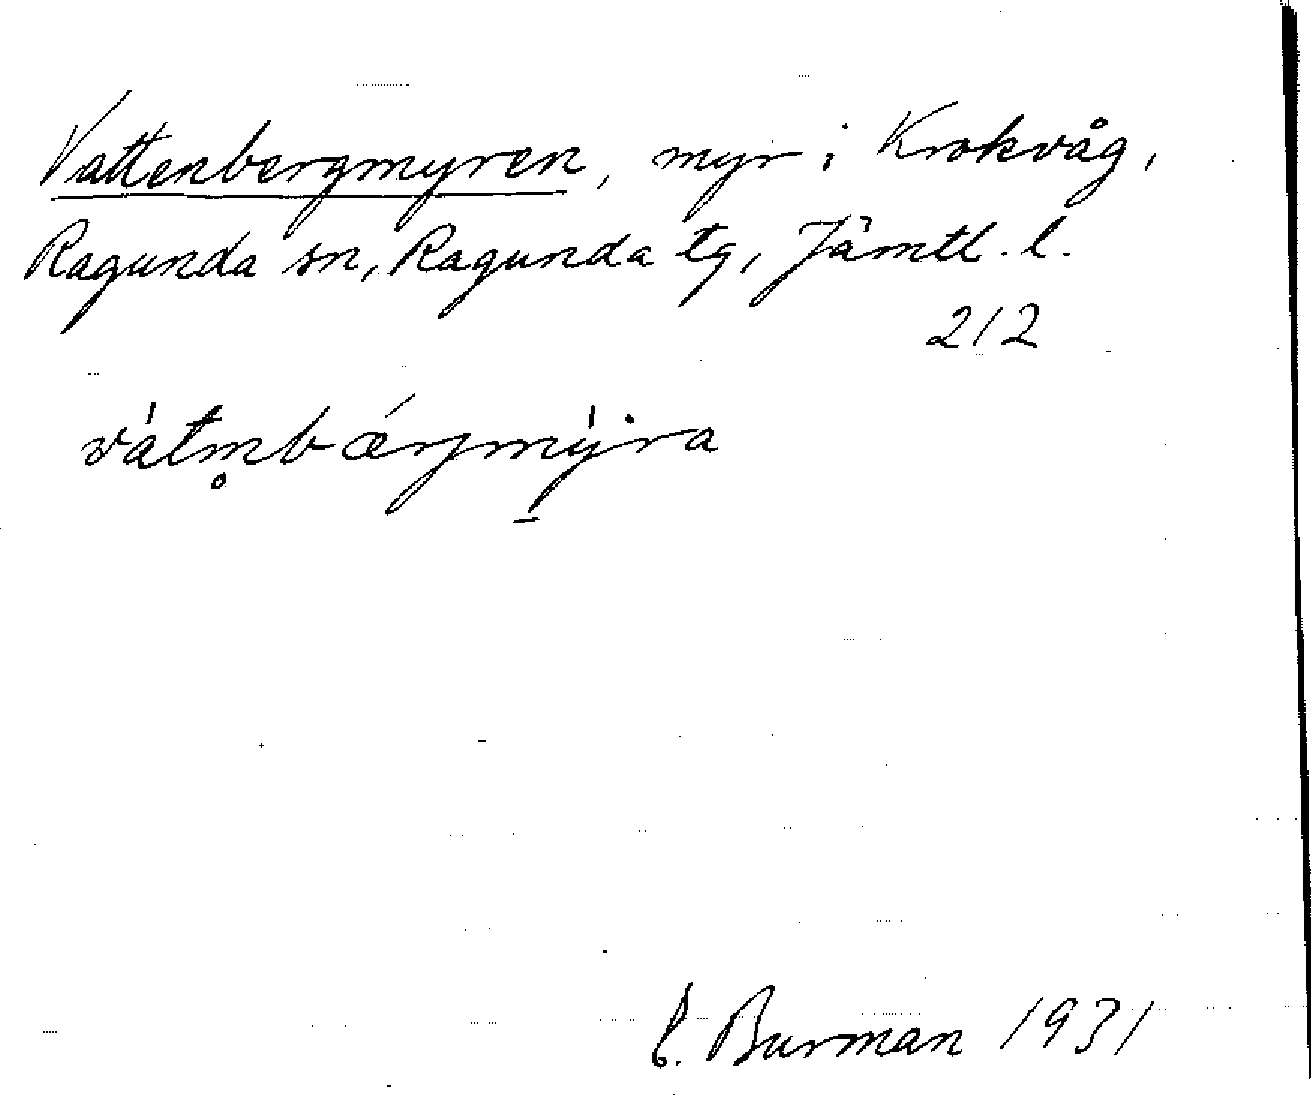 Vattenbergmyren, myr i Krokvåg,
Ragunda sn, Ragunda tg, Jämtl. l.
212
vátm̥bærjmýra
E. Burman 1931